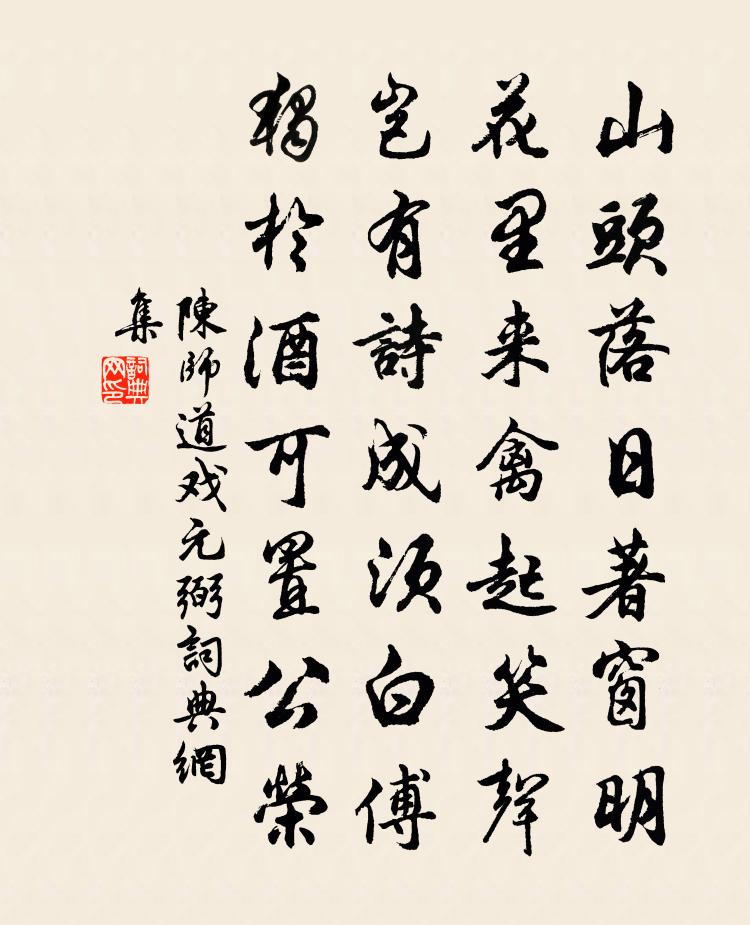 山頭落日著窗明
花里来禽起笑聲
岂有詩成須白傅
獨於酒可置公榮
陳師道戏元弼詞典網
集
詞典
网印